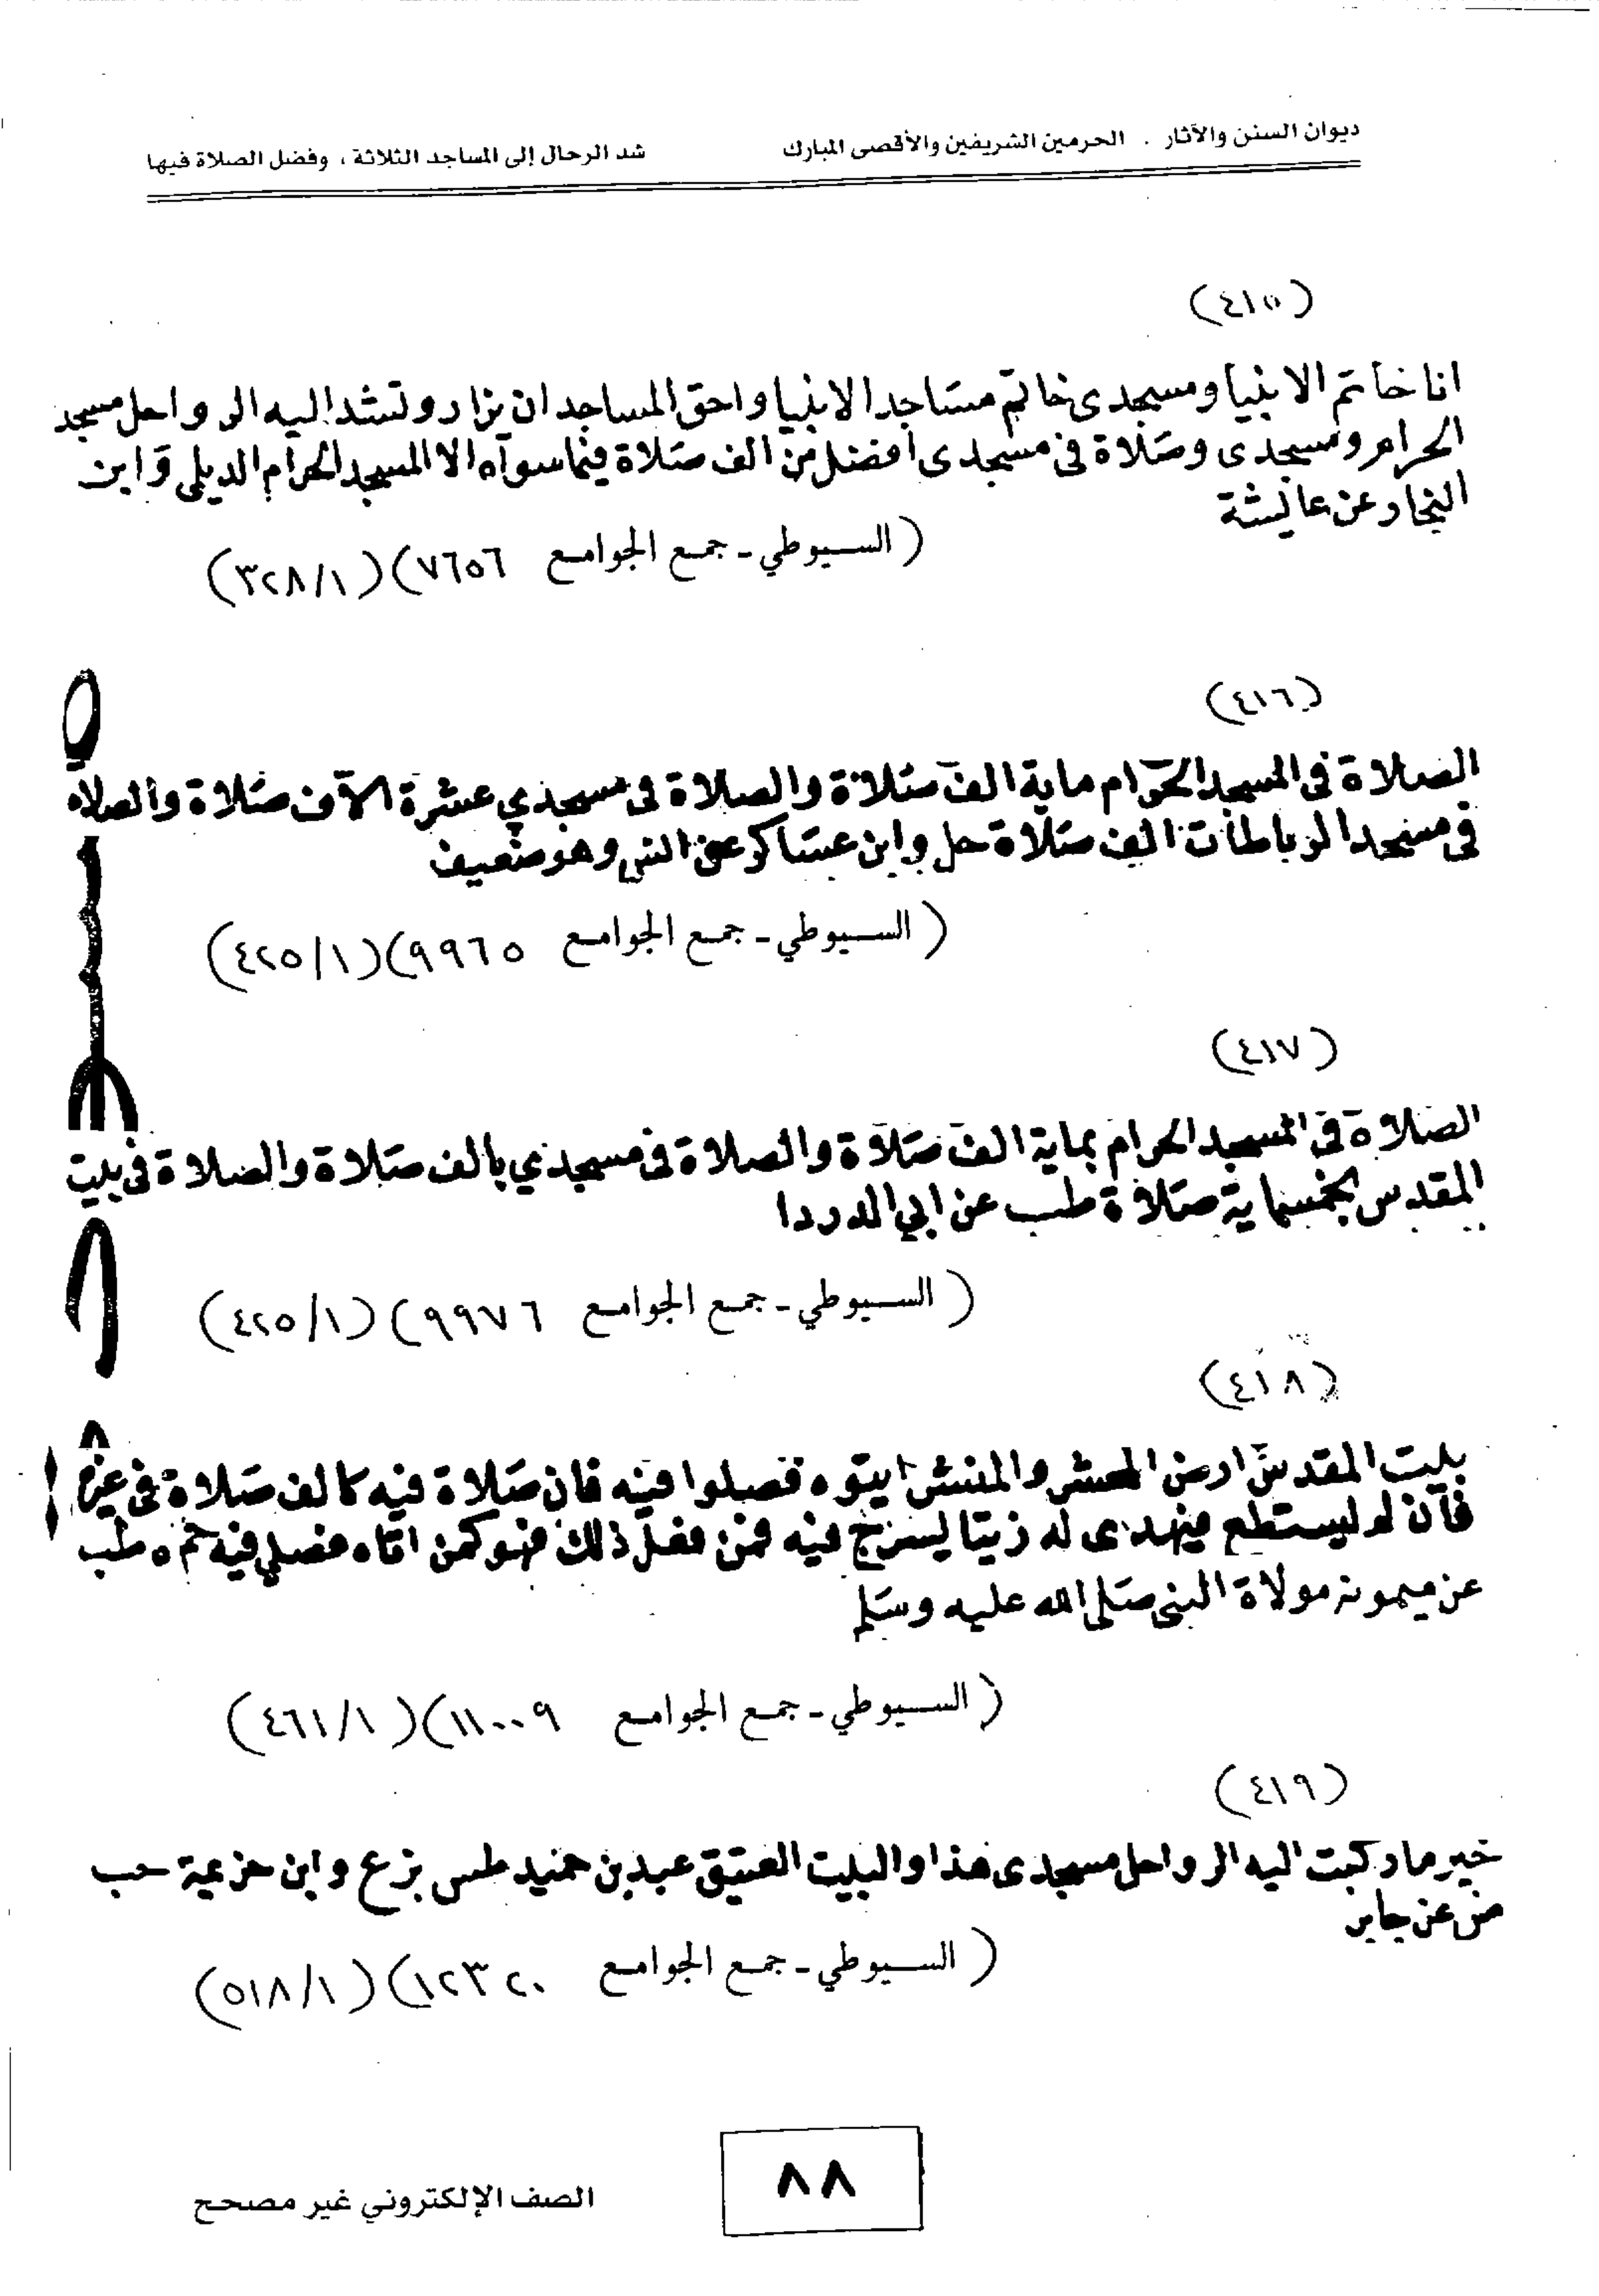 ديوان السنن والآثار . الحرمين الشريفين والأقصى المبارك شد الرحال إلى المساجد الثلاثة ، وفضل الصلاة فيها
(٤١٥)
انا خاتم الانبيا ومسجدى خاتم مساجد الانبيا واحق المساجد ان يزار وتشد اليه الرواحل مسجد
الحرام ومسجدى وصلاة فى مسجدى افضل من الف صلاة فيما سواه الا المسجد الحرام الديلمى وابن
النجار عن عايشة
(السيوطي - جمع الجوامع ٧٦٥٦) (٣٢٨/١)
(٤١٦)
الصلاة فى المسجد الحرام ماية الف صلاة والصلاة فى مسجدي عشرة الآف صلاة والصلاه
فى مسجد الرباطات الف صلاة حل وابن عساكر عن انس وهو ضعيف
(السيوطي - جمع الجوامع ٩٩٦٥) (٤٢٥/١)
(٤١٧)
الصلاة فى المسجد الحرام بماية الف صلاة والصلاة فى مسجدي بالف صلاة والصلاة فى بيت
المقدس بخمسماية صلاة طب عن ابي الدردا
(السيوطي - جمع الجوامع ٩٩٧٦) (٤٢٥/١)
(٤١٨)
بيت المقدس ارض المحشر والمنشر ايتوه فصلوا فيه فان صلاة فيه كالف صلاة فى غيره
فان لم يستطع فيهدى له زيتا يسرج فيه فمن فعل ذلك فهو كمن اتاه فصلي فيه حم ه طب
عن ميمونة مولاة النبى صلى الله عليه وسلم
(السيوطي - جمع الجوامع ١١٠٠٩) (٤٦١/١)
(٤١٩)
خير ما ركبت اليه الرواحل مسجدى هذا والبيت العتيق عبد بن حميد طس بز ع وابن خزيمة حب
ض عن جابر
(السيوطي - جمع الجوامع ١٢٣٢٠) (٥١٨/١)
٨٨
الصف الإلكتروني غير مصحح